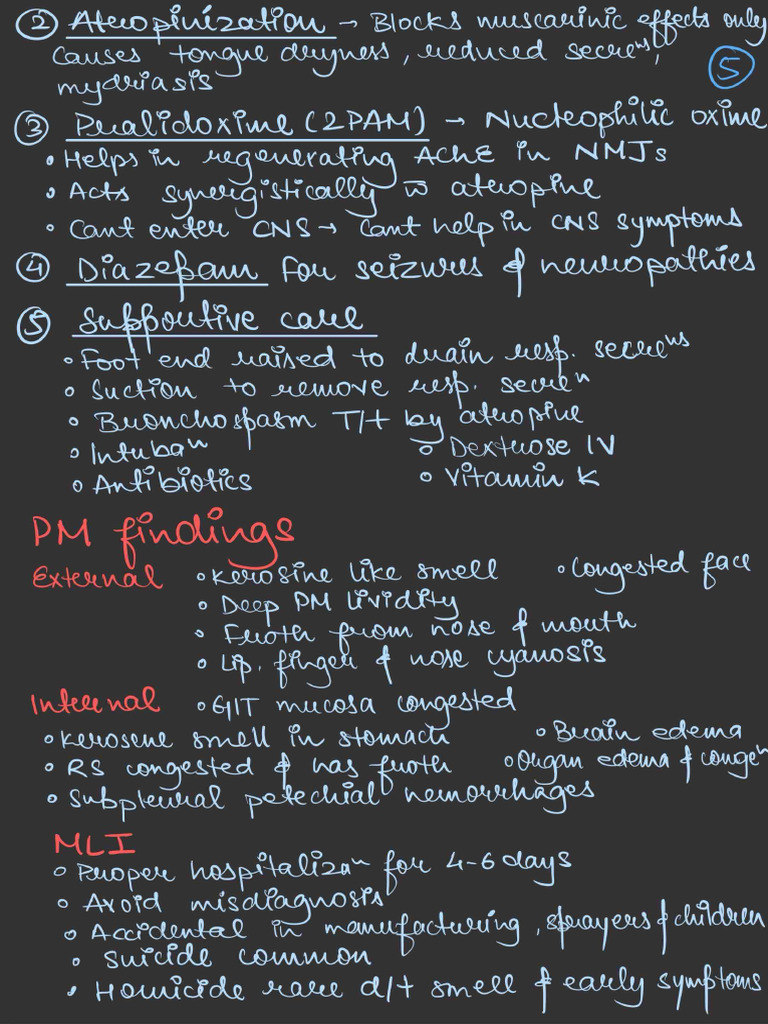 ② Atropinization → Blocks muscarinic effects only
Causes tongue dryness, reduced secreⁿˢ,
mydriasis
⑤
③ Pralidoxime (2PAM) → Nucleophilic oxime
• Helps in regenerating AChE in NMJs
• Acts synergistically w̅ atropine
• Cant enter CNS → Cant help in CNS symptoms
④ Diazepam for seizures & neuropathies
⑤ Supportive care
• Foot end raised to drain resp. secreⁿˢ
• Suction to remove resp. secreⁿ
• Bronchospasm T/t by atropine
• Intubaⁿ
• Dextrose IV
• Antibiotics
• Vitamin K
PM findings
External • Kerosine like smell • Congested face
• Deep PM lividity
• Froth from nose & mouth
• Lip, finger & nose cyanosis
Internal • GIT mucosa congested
• Kerosene smell in stomach • Brain edema
• RS congested & has froth • Organ edema & congeⁿ
• Subpleural petechial hemorrhages
MLI
• Proper hospitalizaⁿ for 4-6 days
• Avoid misdiagnosis
• Accidental in manufacturing, sprayers & children
• Suicide common
• Homicide rare d/t smell & early symptoms